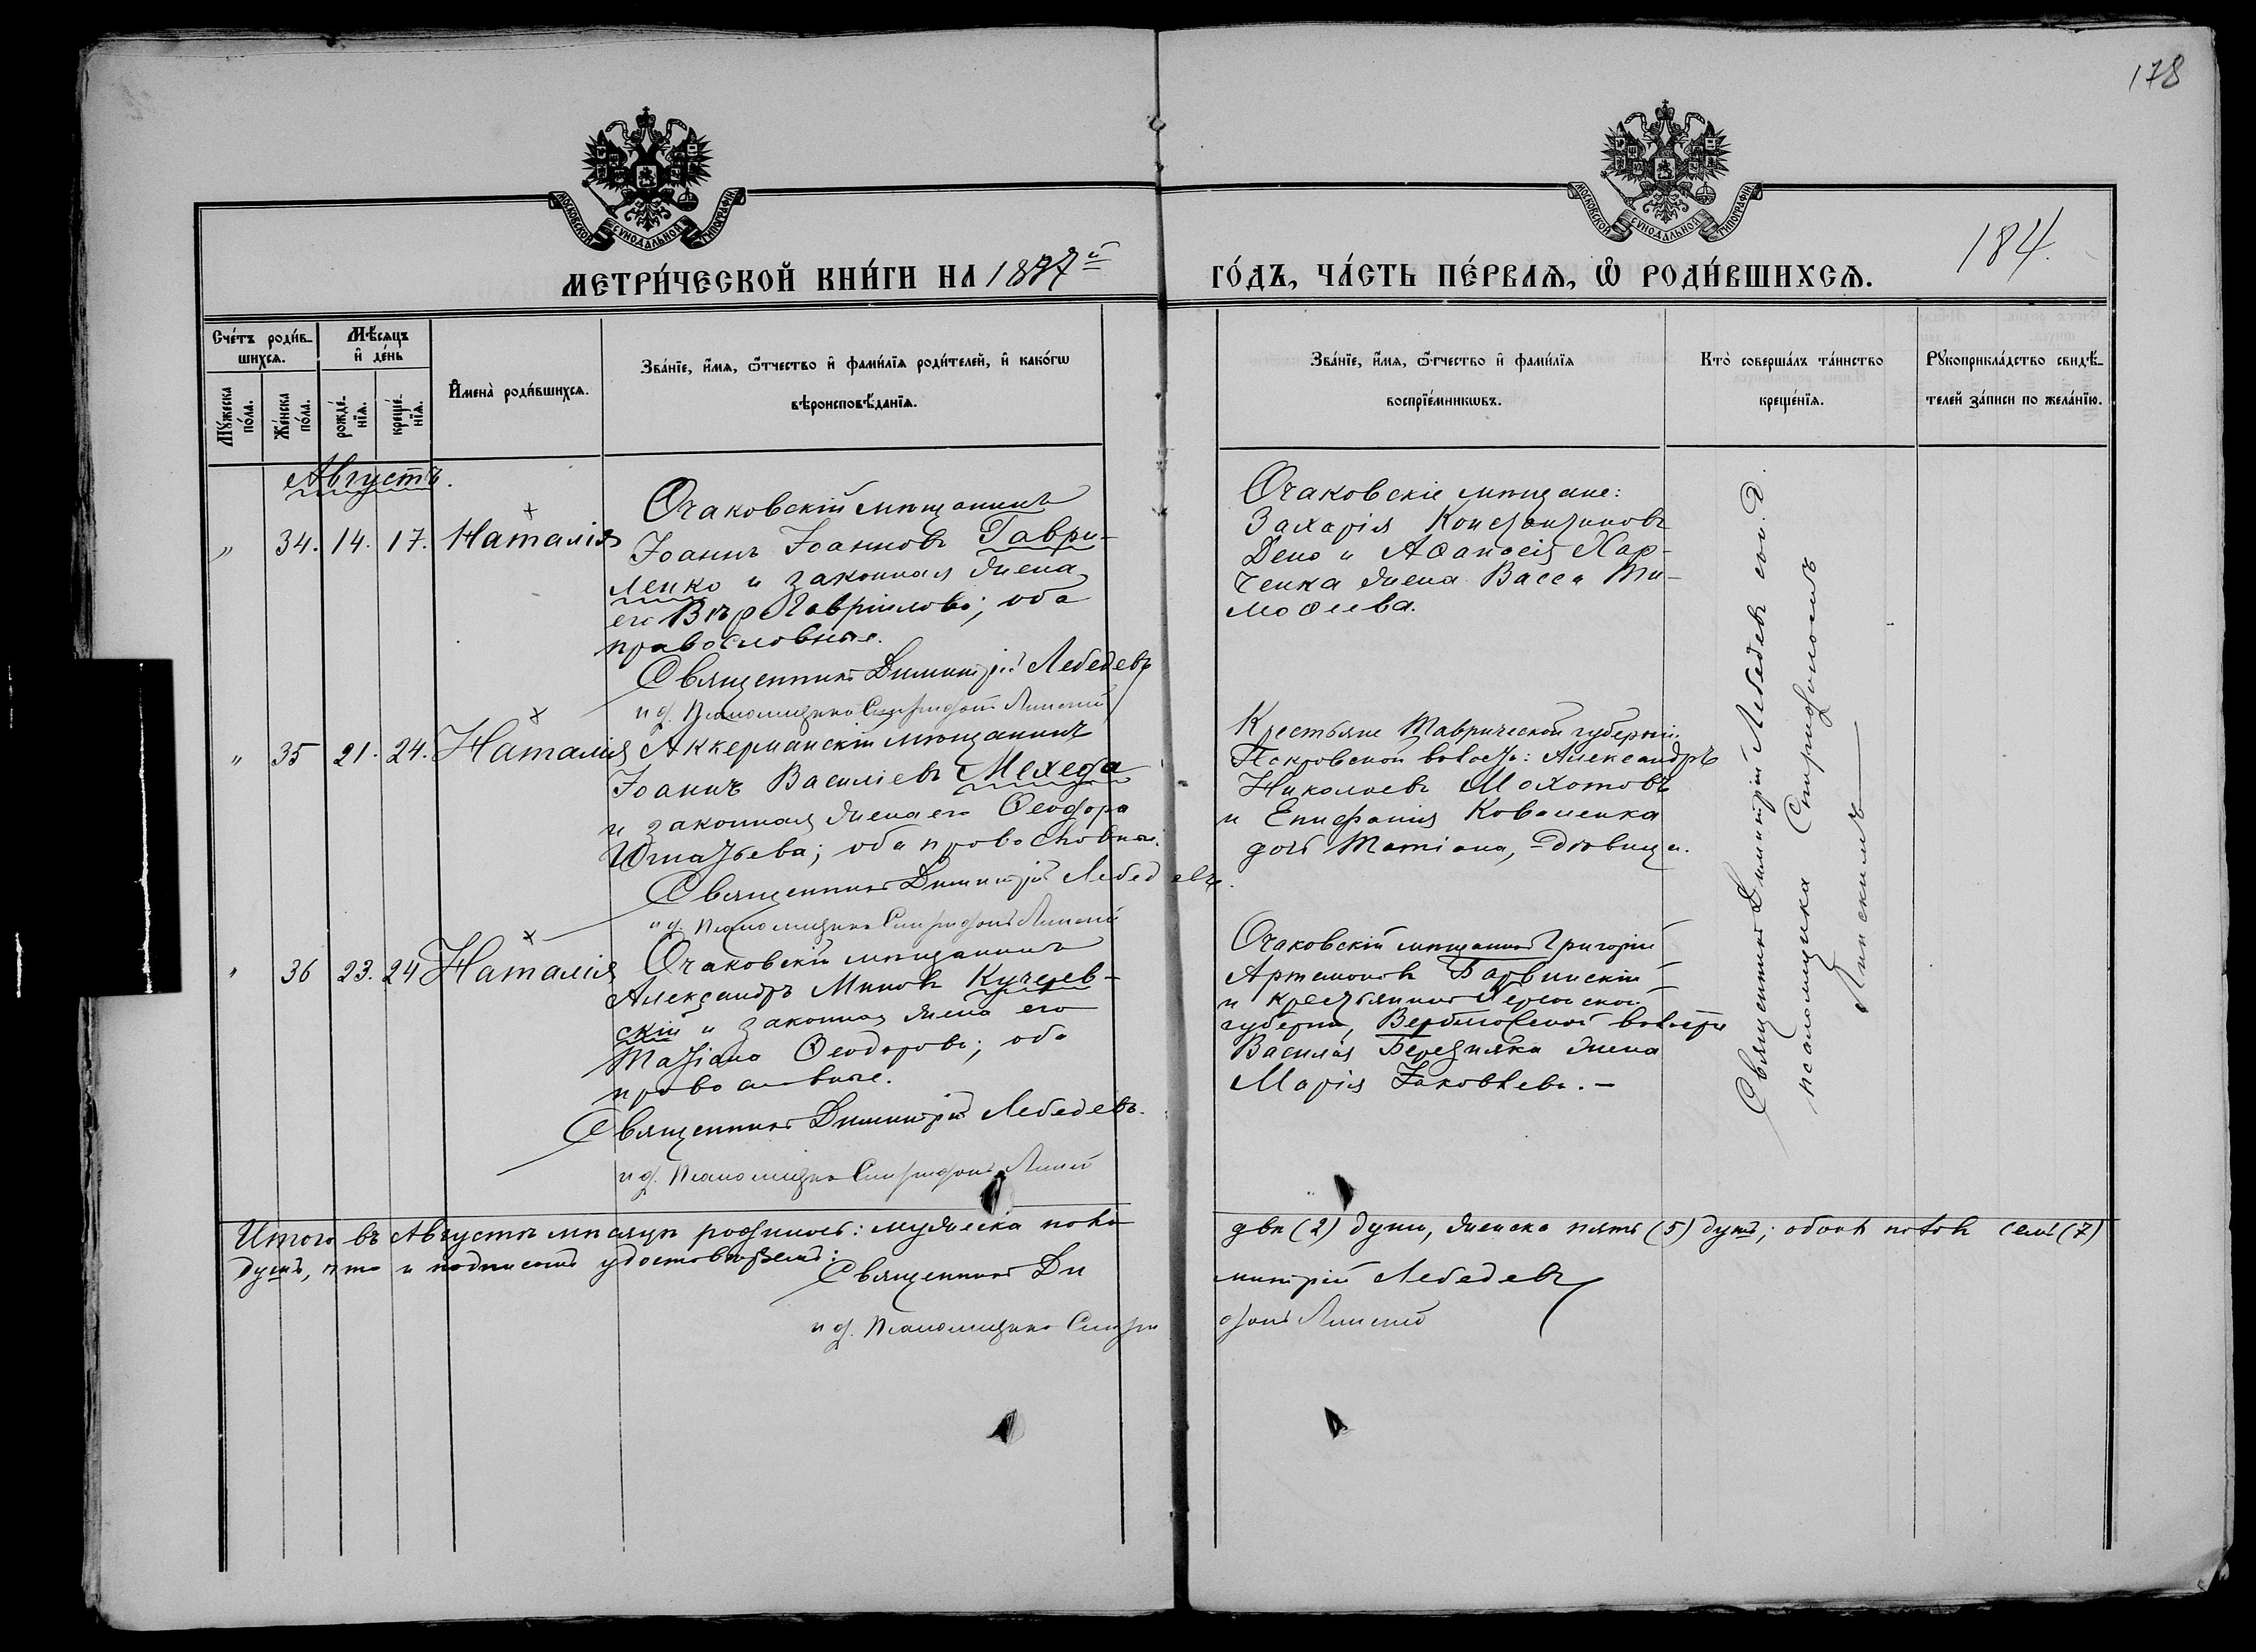 178
МОСКОВСКОЙ СѴНОДАЛЬНОЙ ТИПОГРАФІИ
МОСКОВСКОЙ СѴНОДАЛЬНОЙ ТИПОГРАФІИ
184.
МЕТРИ́ЧЕСКОЙ КНИ́ГИ НА 1897й
ГО́ДЪ, ЧА́СТЬ ПЕ́РВАѦ, Ѽ РОДИ́ВШИХСѦ.
Сче́тъ роди́в-
шихсѧ.
Мꙋ́жеска
по́ла.
Же́нска
по́ла.
Мѣ́сѧцъ
и҆ де́нь
рожде́-
нїѧ.
креще́-
нїѧ.
И҆мена̀ роди́вшихсѧ.
Зва́нїе, и҆́мѧ, ѻ҆́тчество и҆ фами́лїѧ роди́телей, и҆ како́гѡ
вѣроисповѣ́данїѧ.
Зва́нїе, и҆́мѧ, ѻ҆́тчество и҆ фами́лїѧ
воспрїе́мникѡвъ.
Кто̀ соверша́лъ та́инство
креще́нїѧ.
Рꙋкоприкла́дство свидѣ́-
телей за́писи по жела́нїю.
Августъ.
" 34. 14. 17. Наталія
Очаковскій мѣщанинъ
Іоаннъ Іоанновъ Гаври-
ленко и законная жена
его Вѣра Гавріилова; оба
православные.
Священникъ Димитрій Лебедевъ
и д. псаломщика Спиридонъ Липскій
Очаковскіе мѣщане:
Захарія Константиновъ
Дено и Аѳанасія Хар-
ченка жена Васса Ти-
моѳеева.
" 35 21. 24. Наталія
Аккерманскій мѣщанинъ
Іоаннъ Василіевъ Мехеда
и законная жена его Ѳеодора
Игнатьева; оба православные.
Священникъ Димитрій Лебедевъ.
и д. псаломщика Спиридонъ Липскій
Крестьяне Таврической губерніи
Покровской волости: Александръ
Николаевъ Мохотовъ
и Епифанія Коваленка
дочь Татіана, дѣвица.
" 36 23. 24 Наталія
Очаковскій мѣщанинъ
Александръ Миновъ Кучерев-
скій и законная жена его
Татіана Ѳеодорова; оба
православные.
Священникъ Димитрій Лебедевъ.
и д. псаломщика Спиридонъ Липскій
Очаковскій мѣщанинъ Григорій
Артемоновъ Барвинскій
и крестьянина Херсонской
губерніи, волости
Василія Березняка жена
Марія Іаковлева. —
Священникъ Димитрій Лебедевъ
псаломщика Спиридономъ
Липскимъ
Итого въ Августѣ мѣсяцѣ родилось: мужеска пола двѣ (2) души, женска пять (5) душъ; обоего пола семь (7)
душъ, что и подписомъ удостовѣряемъ:
Священникъ Димитрій Лебедевъ
и д. псаломщика Спиридонъ Липскій